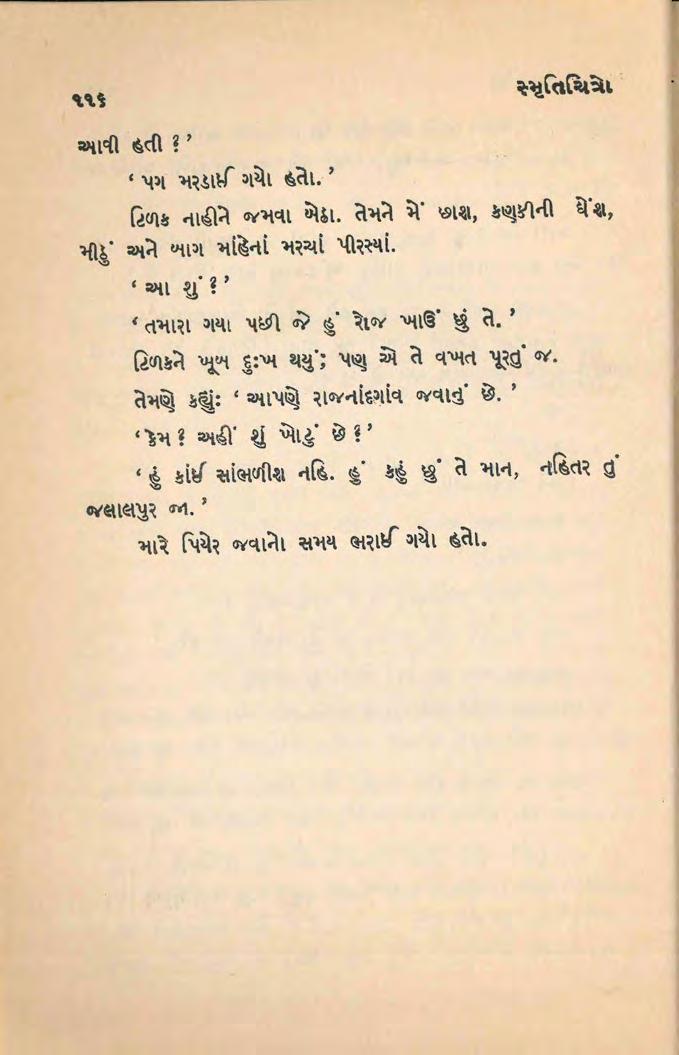 ૧૧૬
સ્મૃતિચિત્રો
આવી હતી ?’
‘ પગ મરડાઈ ગયો હતો. ’
ટિળક નાહીને જમવા બેઠા. તેમને મેં છાશ, કણકીની ઘેંશ,
મીઠું અને બાગ માંહેનાં મરચાં પીરસ્યાં.
‘ આ શું ?’
‘ તમારા ગયા પછી જે હું રોજ ખાઉં છું તે. ’
ટિળકને ખૂબ દુઃખ થયું; પણ એ તે વખત પૂરતું જ.
તેમણે કહ્યું: ‘ આપણે રાજનાંદગાંવ જવાનું છે. ’
‘ કેમ ? અહીં શું ખોટું છે ?’
‘ હું કાંઈ સાંભળીશ નહિ. હું કહું છું તે માન, નહિતર તું
જલાલપુર જા. ’
મારે પિયેર જવાનો સમય ભરાઈ ગયો હતો.